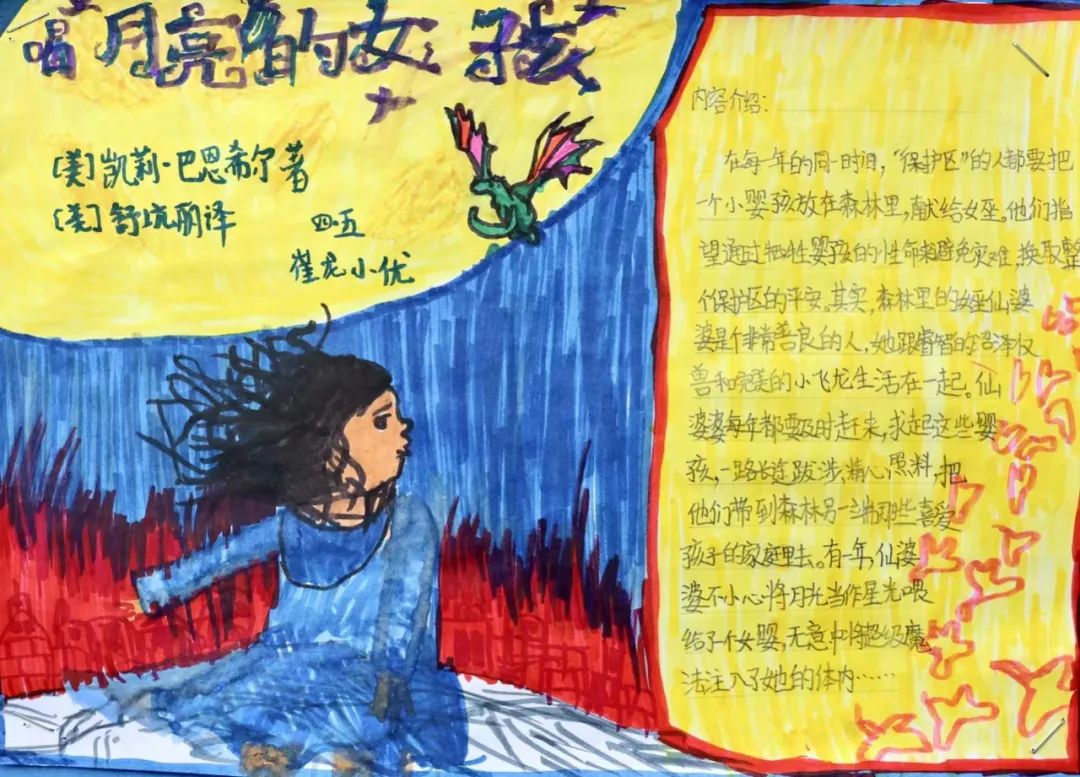 喝月亮的女孩
[美]凯莉·巴恩希尔 著
[美]舒坑丽译
四·五
崔龙小优
内容介绍：
在每一年的同一时间，“保护区”的人都要把
一个小婴孩放在森林里，献给女巫。他们指
望通过牺牲婴孩的性命来避免灾难，换取整
个保护区的平安。其实，森林里的女巫仙婆
婆是个非常善良的人，她跟睿智的沼泽
兽和完美的小飞龙生活在一起。仙
婆婆每年都要及时赶来，求起这些婴
孩，一路长途跋涉，满心照料，把
他们带到森林另一端那些喜爱
孩子的家庭里去。有一年，仙婆
婆不小心将月光当作星光喂
给了个女婴，无意中将超级魔
法注入了她的体内……